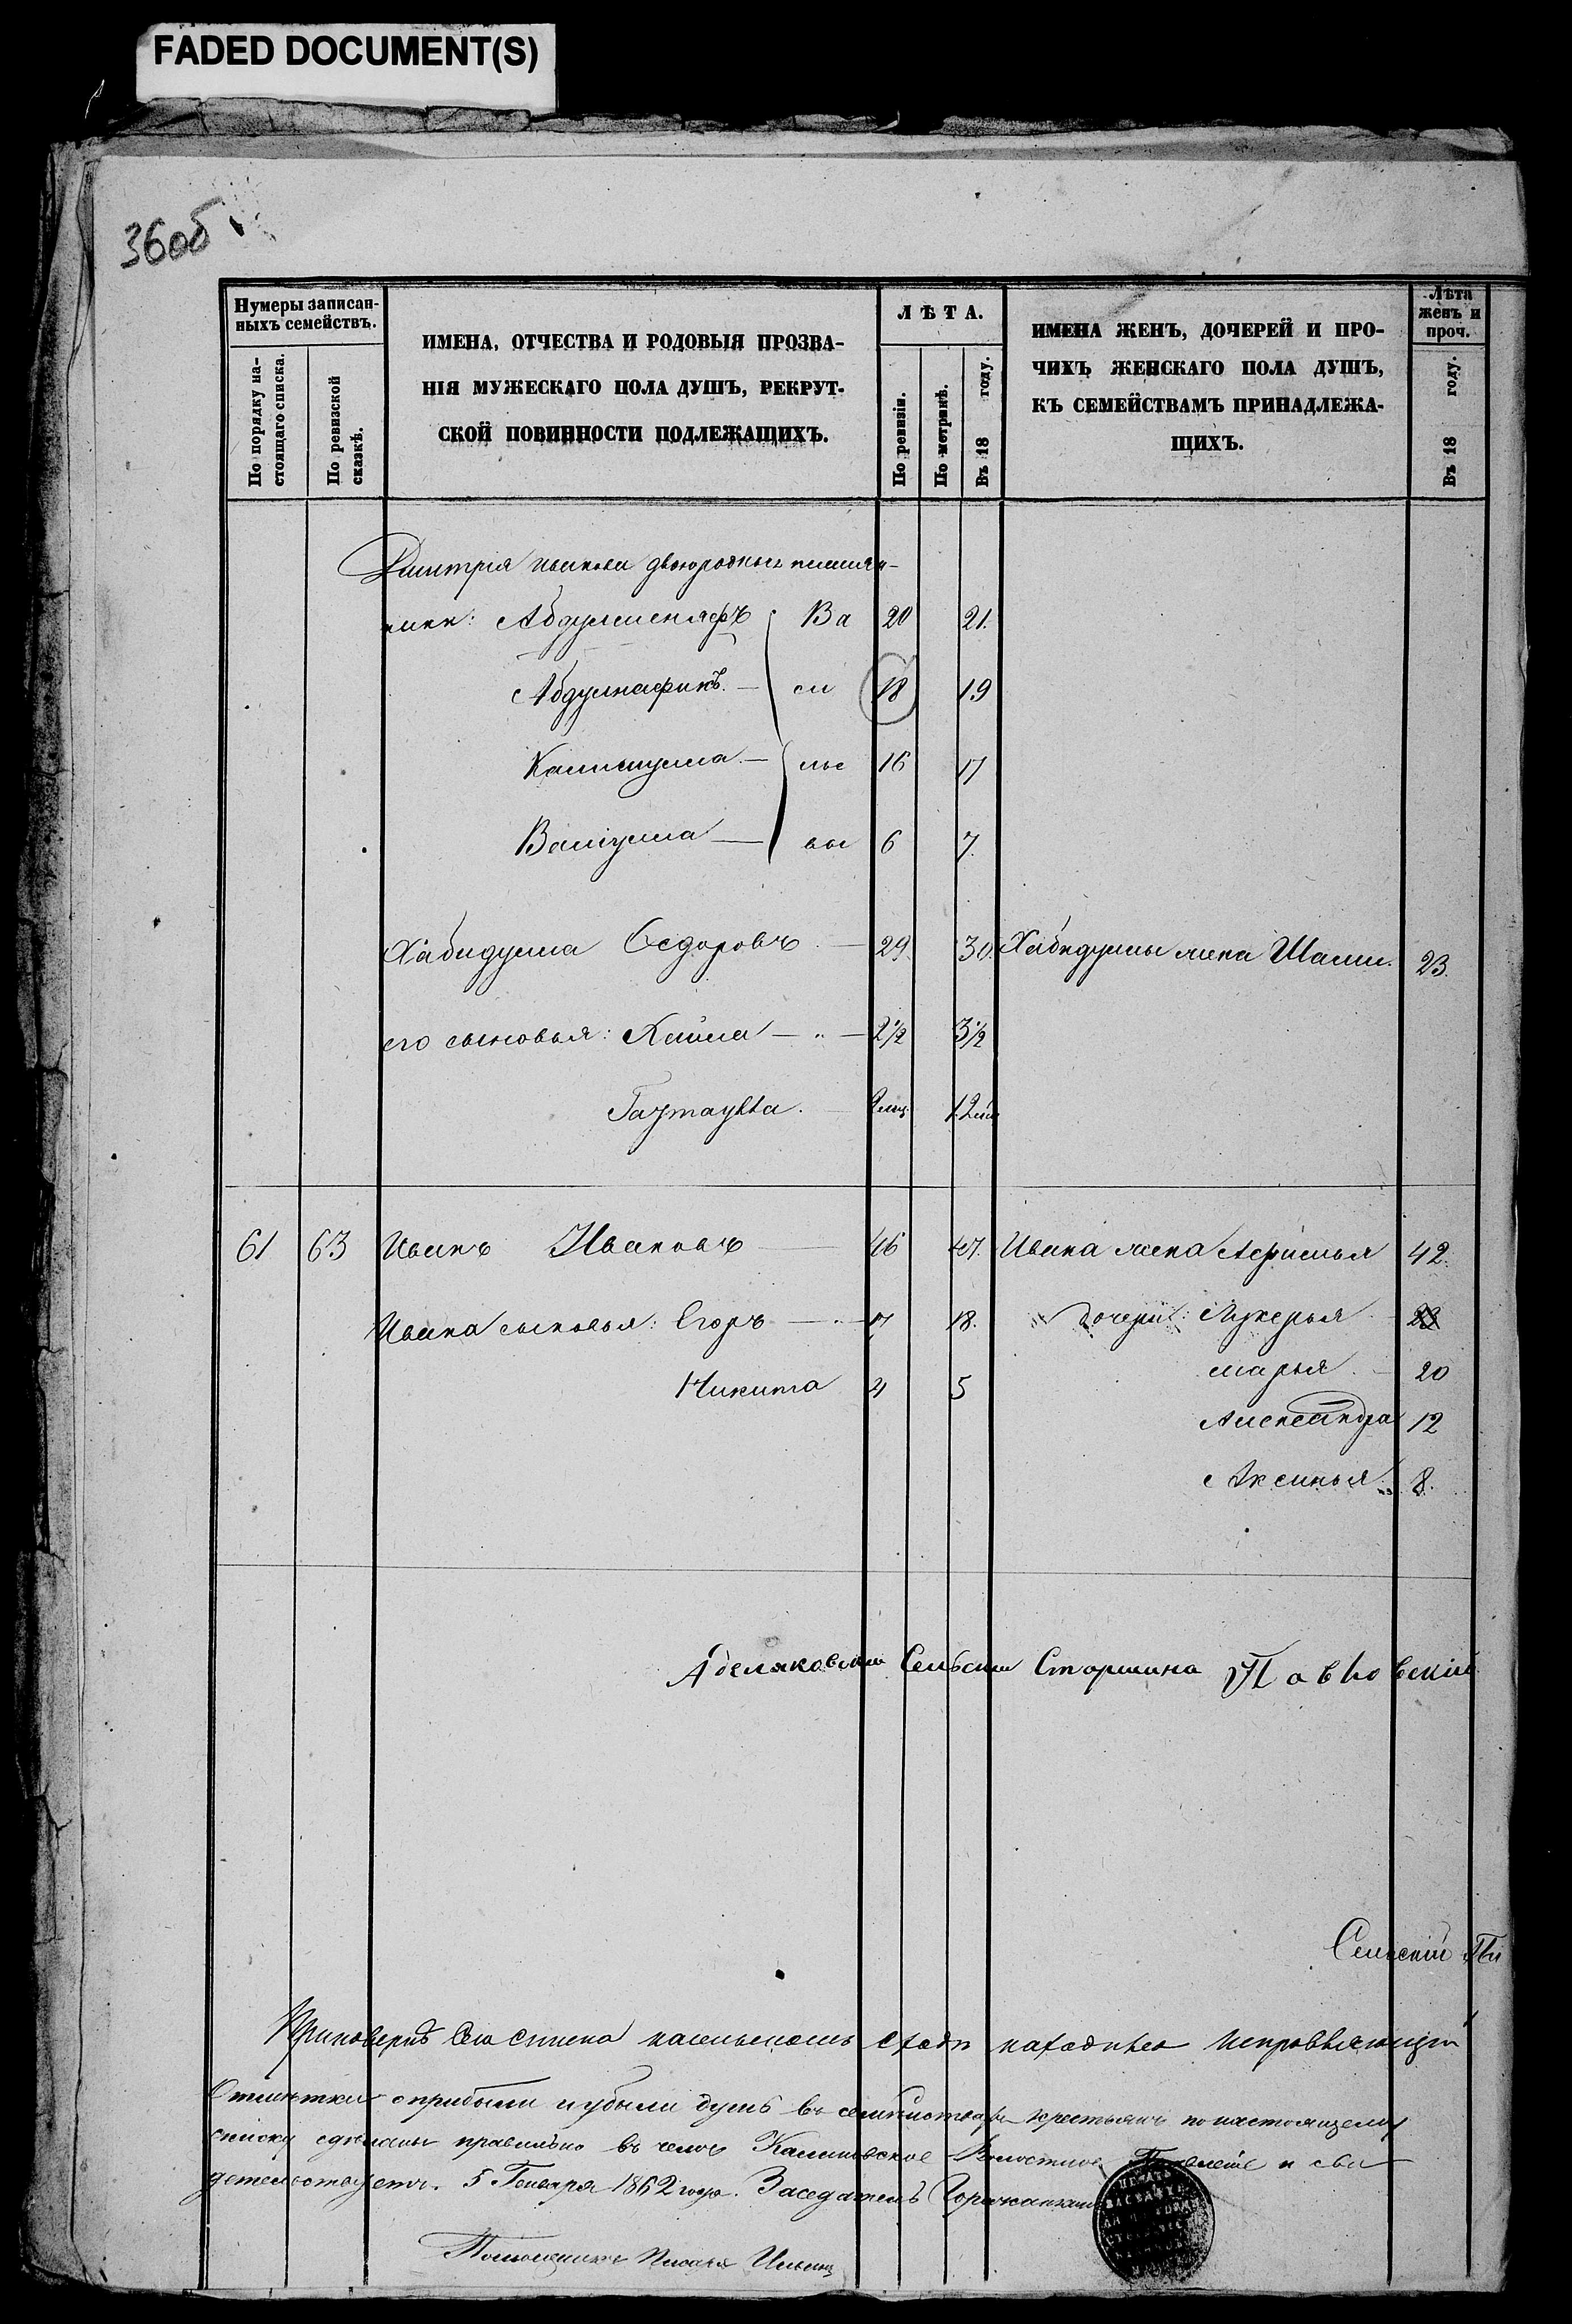 FADED DOCUMENT(S)
36об
Нумеры записан-
ныхъ семействъ.
По порядку на-
стоящаго списка.
По ревизской
сказкѣ.
ИМЕНА, ОТЧЕСТВА И РОДОВЫЯ ПРОЗВА-
НІЯ МУЖЕСКАГО ПОЛА ДУШЪ, РЕКРУТ-
СКОЙ ПОВИННОСТИ ПОДЛЕЖАЩИХЪ.
ЛѢТА.
По ревизіи.
По метрикѣ.
Въ 18 году.
ИМЕНА ЖЕНЪ, ДОЧЕРЕЙ И ПРО-
ЧИХЪ ЖЕНСКАГО ПОЛА ДУШЪ,
КЪ СЕМЕЙСТВАМЪ ПРИНАДЛЕЖА-
ЩИХЪ.
Лѣта
женъ и
проч.
Въ 18 году.
Дмитрія Иванова двоюродные племян-
ники: Ва 20 21.
Абдулнафикъ. — си 18 19
— лье 16 17
Валіулла — вы 6 7.
Хабидулла Ѳедоровъ. — 29. 30. Хабидуллы жена 23.
его сыновья: — „ — 2½ 3½
61 63 Иванъ Ивановъ — 46 47. Ивана жена 42.
Ивана сыновья: Егоръ — „ — 17 18. дочери: Лукерья — 23
Никита 4 5 Марья. — 20
Александра 12
Аксинья. 8.
Сельскій Старшина Павловскій
Сельскій Пи
сего списка на сельскомъ сходѣ
Отмѣтки о прибыли и убыли душъ въ семействахъ крестьянъ по настоящему
списку сдѣланы правильно въ чемъ Волостное Правленіе и сви
дѣтельствуетъ. 5 Генваря 1862 года. Засѣдатель
Помощникъ Писаря